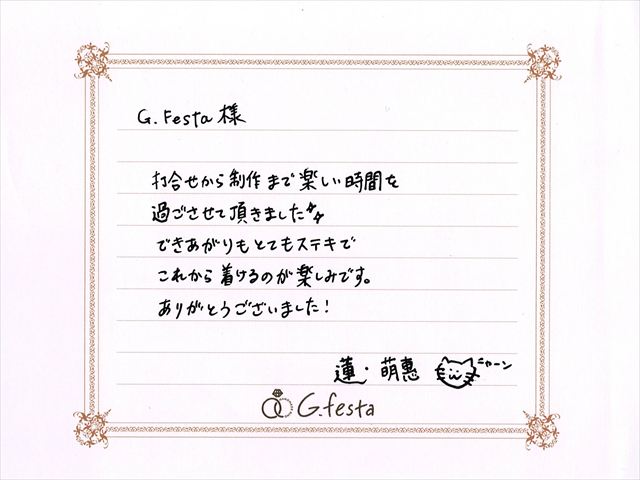 G.Festa 様
打合せから制作まで楽しい時間を
過ごさせて頂きました
できあがりもとてもステキで
これから着けるのが楽しみです。
ありがとうございました!
蓮・萌恵 ニャーン
G.festa